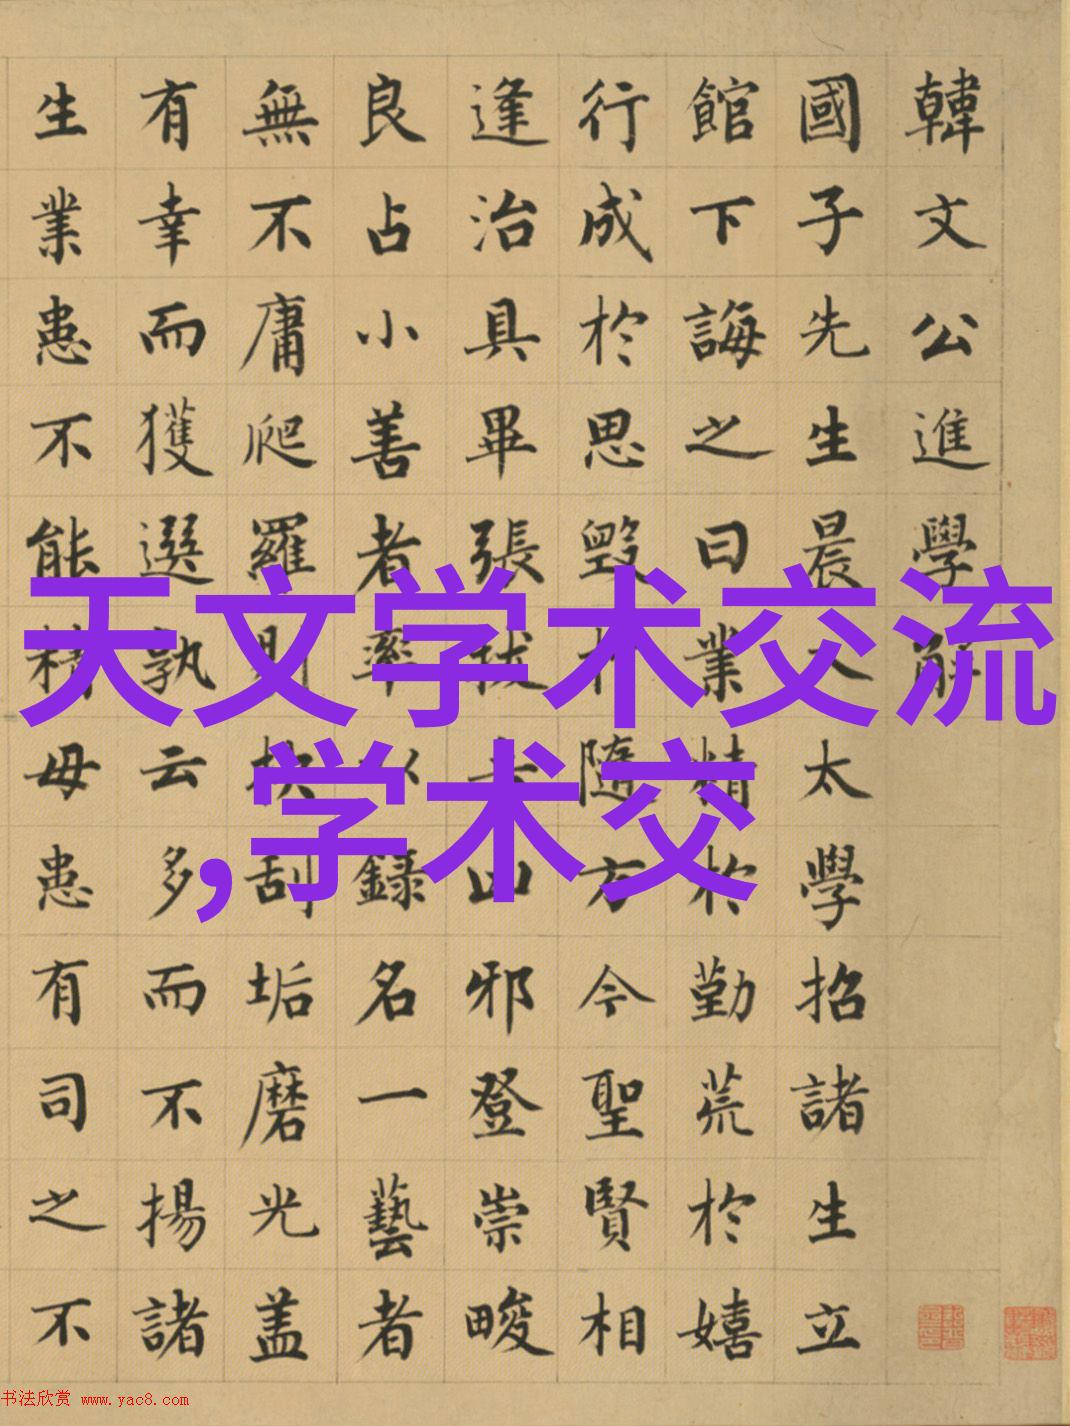 韓文公進學解
國子先生晨入太學招諸生立
館下誨之曰業精於勤荒於嬉
行成於思毀隨方今聖賢相
逢治具畢張拔去凶邪登崇畯
良占小善者率以錄名一藝者
無不庸爬羅剔抉刮垢磨光盖
有幸而獲選孰云多而不揚諸
生業患不能精毋患有司之不
天文学术交流
,学术交
书法欣赏 www.yac8.com